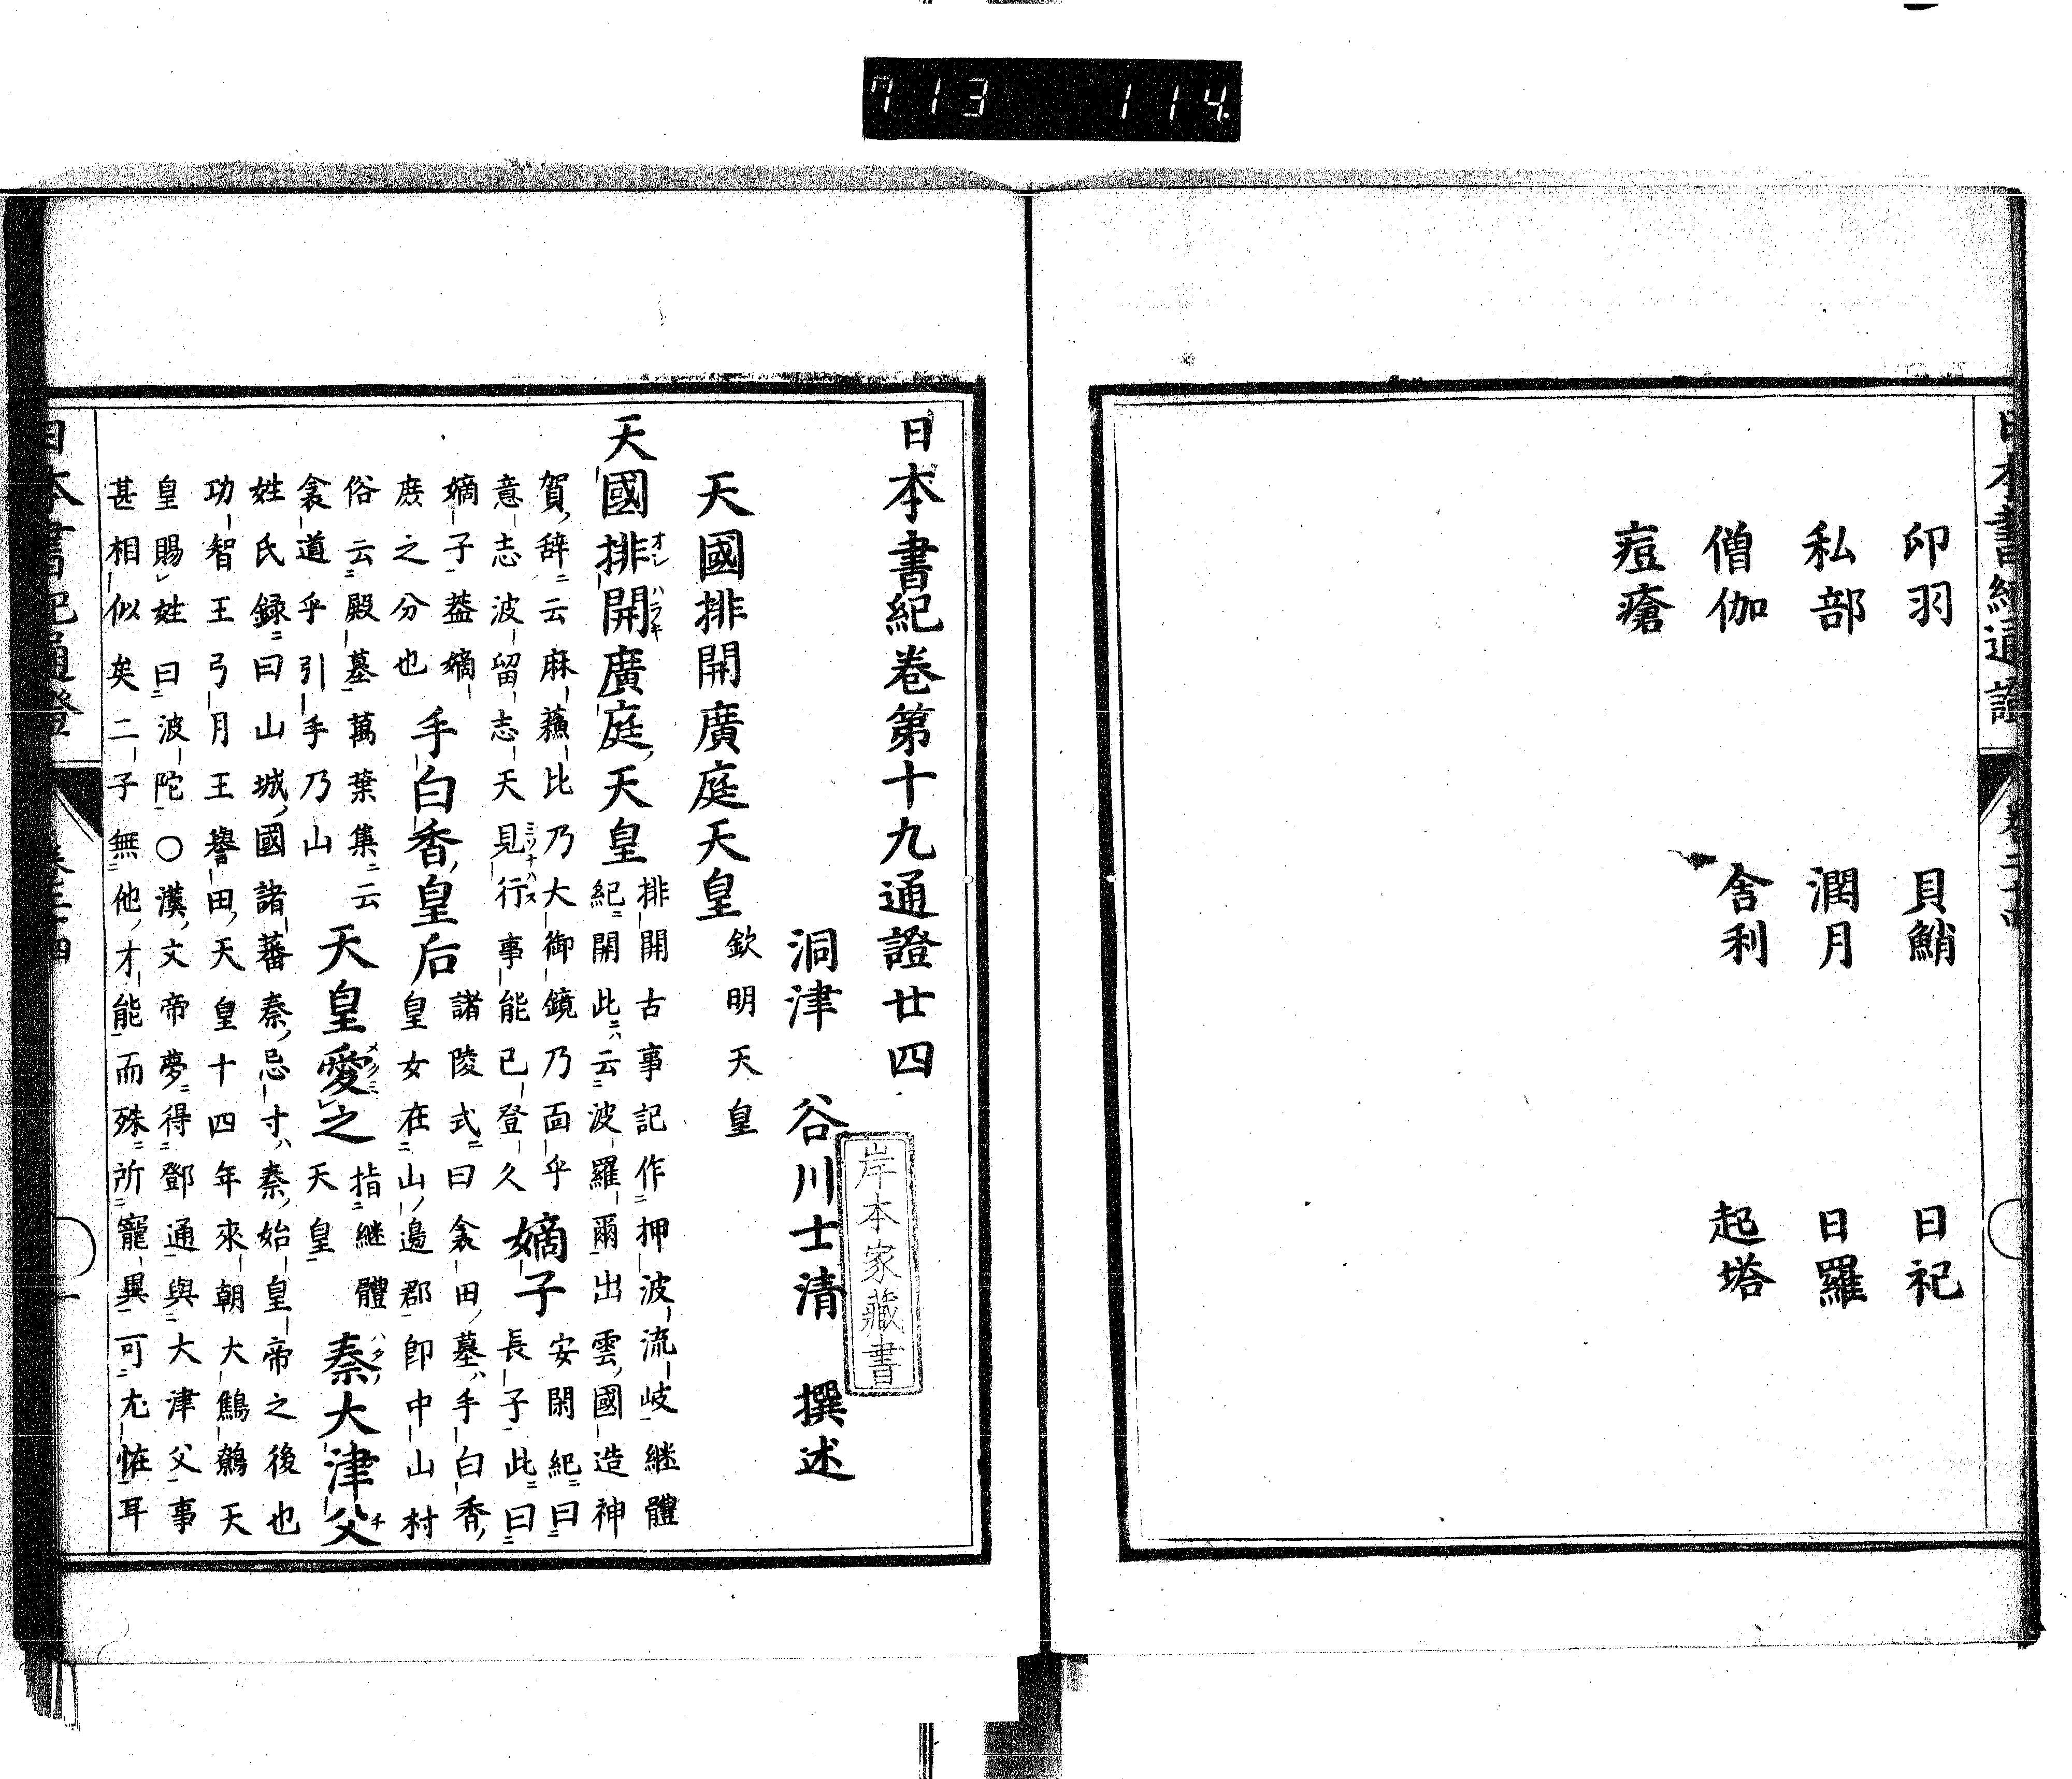 713 114.
日本書紀通證
卷二十四
印羽 貝鮹 日祀
私部 潤月 日羅
僧伽 舎利 起塔
痘瘡
日本書紀卷第十九通證廿四
洞津 谷川士清 撰述
岸本家藏書
天國排開廣庭天皇 欽明天皇
天國排開廣庭天皇
排開古事記作押波流岐継體
紀開此云波羅爾出雲國造神
賀辞云麻蘓比乃大御鏡乃面乎
意志波留志天見行事能已登久
安閑紀曰
嫡子
長子此曰
嫡子葢嫡
庻之分也
手白香皇后
諸陵式曰衾田墓手白香
皇女在山邉郡即中山村
俗云殿墓萬葉集云
衾道乎引手乃山
天皇愛之
指継體
天皇
秦大津父
姓氏録曰山城國諸蕃秦忌寸秦始皇帝之後也
功智王弓月王譽田天皇十四年來朝大鷦鷯天
皇賜姓曰波陀〇漢文帝夢得鄧通與大津父事
甚相似矣二子無他才能而殊所寵異可尤恠耳
日本書紀通證
卷二十四
一